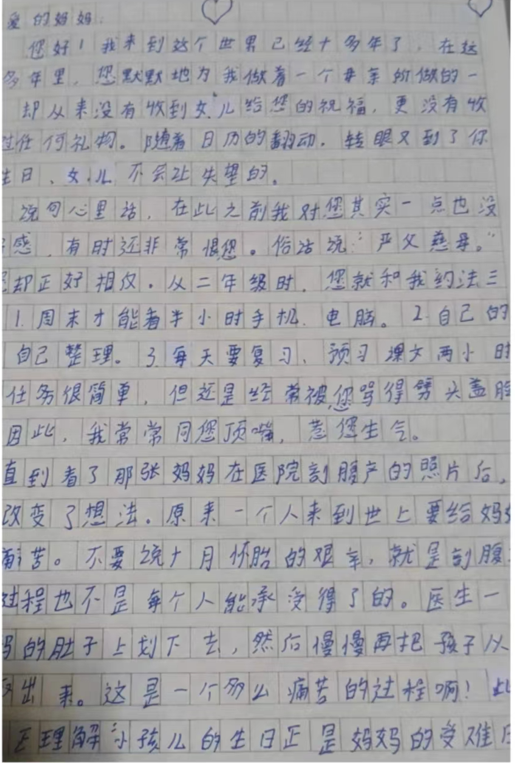 爱的妈妈：
您好！我来到这个世界已经十多年了，在这
多年里，您默默地为我做着一个母亲所做的一
却从来没有收到女儿给您的祝福，更没有收
过任何礼物。随着日历的翻动，转眼又到了你
生日，女儿不会让失望的。
说句心里话，在此之前我对您其实一点也没
感，有时还非常恨您。俗话说：“严父慈母。”
却正好相仅。从二年级时，您就和我约法三
1.周末才能看半小时手机、电脑。2.自己的
自己整理。3.每天要复习、预习课文两小时
任务很简单，但还是经常被您骂得劈头盖脸
因此，我常常同您顶嘴，惹您生气。
直到看了那张妈妈在医院剖腹产的照片后，
改变了想法。原来一个人来到世上要给妈妈
痛苦。不要说十月怀胎的艰辛，就是剖腹
过程也不是每个人能承受得了的。医生一
妈的肚子上划下去，然后慢慢再把孩子从
出来。这是一个多么痛苦的过程啊！此
正理解“小孩儿的生日正是妈妈的受难日